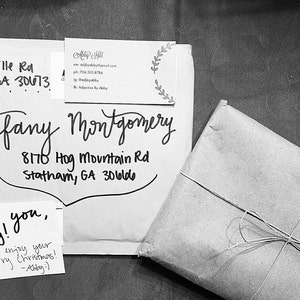 lle Rd
GA 30673
Abby Hill
ph:
ig:
fb: Adjectives By Abby
ffany Montgomery
8170 Hog Mountain Rd
Statham, GA 30666
you,
y!
enjoy your
ry Christmas!
-Abby:)